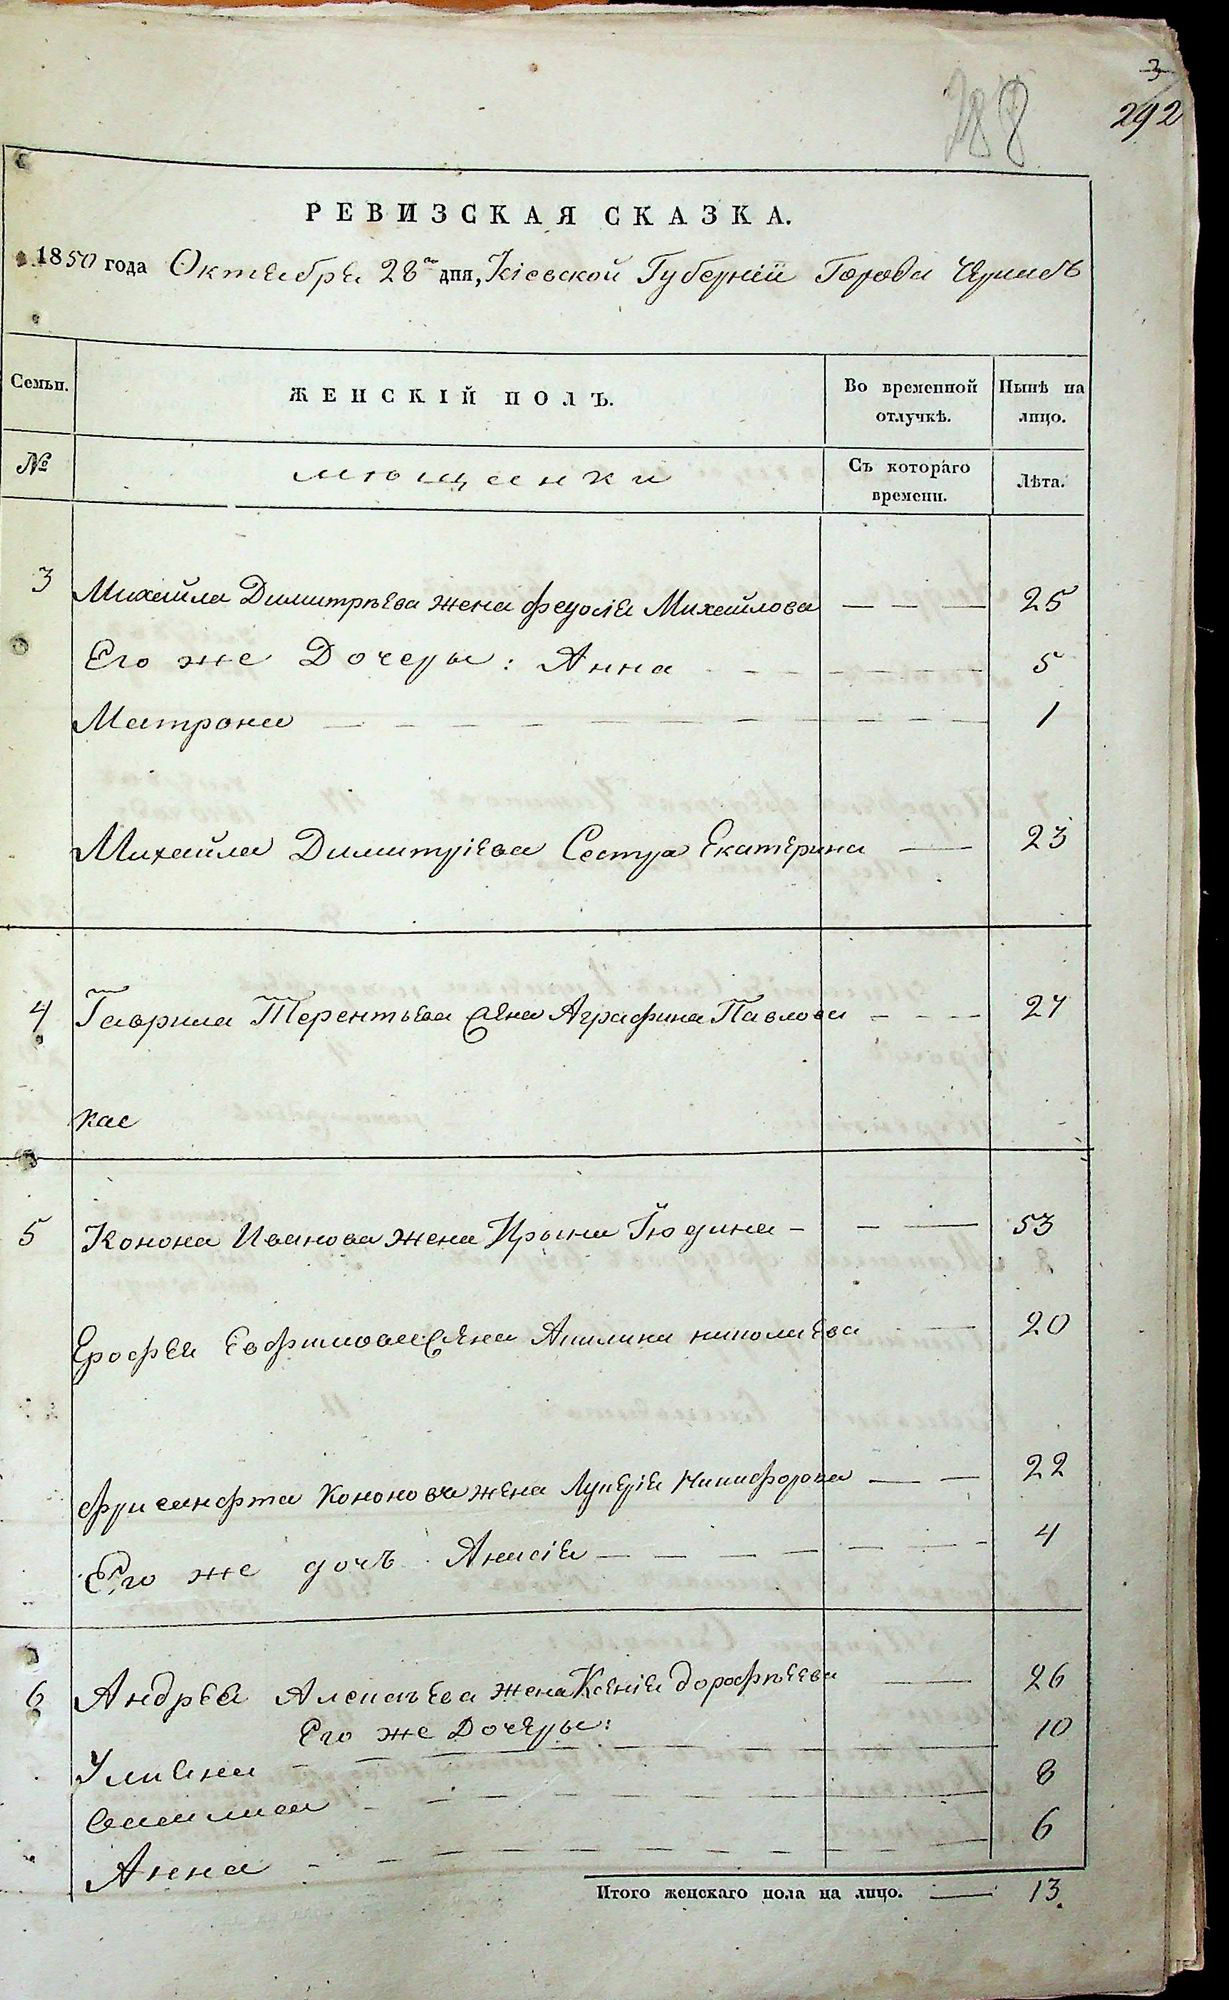 3
292
288
РЕВИЗСКАЯ СКАЗКА.
1850 года Октября 28го дня, Кіевской Губерніи Города Черкасъ
Семьи.
ЖЕНСКІЙ ПОЛЪ.
Во временной отлучкѣ.
Нынѣ на лицо.
№
мѣщанки
Съ котораго времени.
Лѣта.
3 Михайла Димитрѣева жена Феодосія Михайлова — — — 25
Его же Дочеры: Анна — — — 5
Матрона — — — 1
Михайла Димитріева Сестра Екатерина — 23
4 Гаврила Терентьева жена Аграфина Павлова — — — 27
5 Конона Иванова жена Ирына — — — 53
Ерофея жена Акилина николаева — 20
Кононова жена Лукерія Никифорова — — 22
Его же дочь Анисія — — — 4
6 Андрея Алексѣева жена Ксенія Дорофѣева — 26
Его же Дочеры:
Улияна — — — 10
Василиса — — — 8
Анна — — — 6
Итого женскаго пола на лицо. — 13.